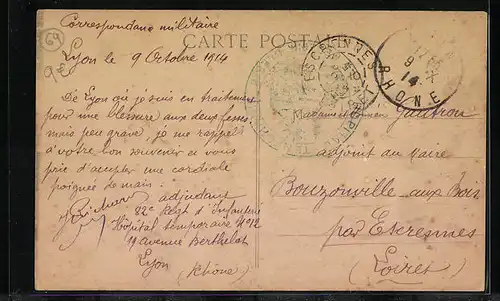 69
Correspondance militaire
CARTE POSTALE
Lyon le 9 Octobre 1914
De Lyon où je suis en traitement
pour une blessure aux deux fesses,
mais peu grave, je me rappelle
à votre bon souvenir et vous
prie d'accepter une cordiale
poignée de main.
adjudant
82e Regt d'Infanterie
Hôpital temporaire N°12
avenue Berthelot
Lyon (Rhône)
RHONE
9
14
Gautron
adjoint au Maire
Bouzonville aux Bois
par Escrennes
(Loiret)